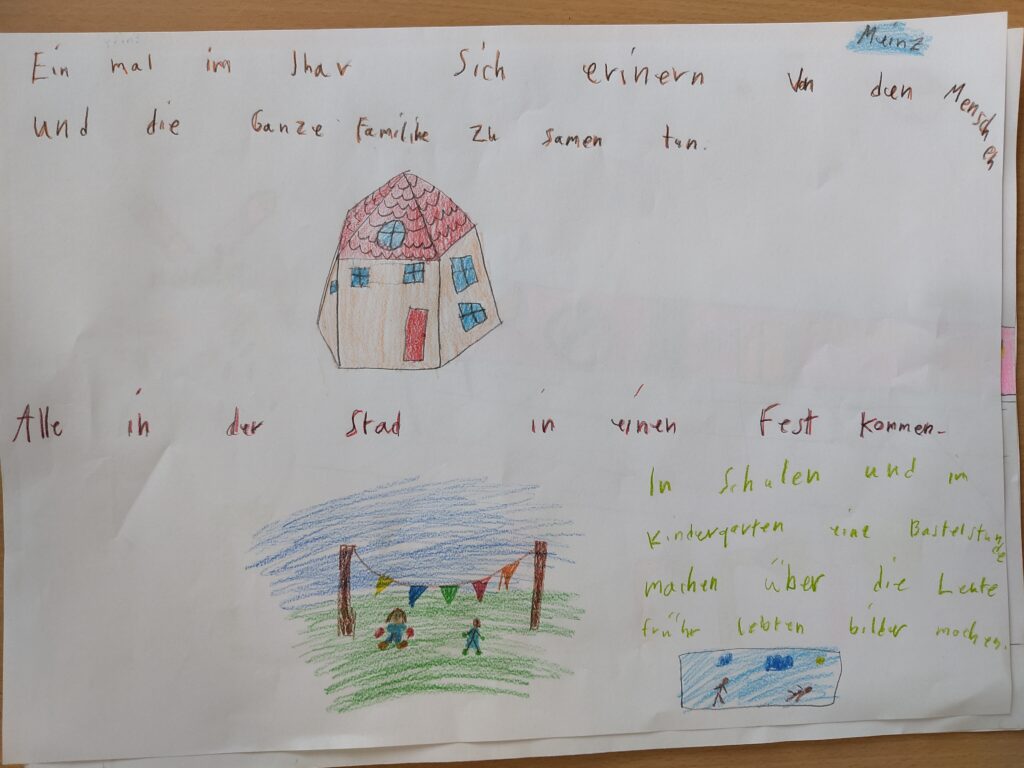 Meinz
Ein mal im Jhar Sich erinern von den Menschen
und die Ganze Familihe zu samen tun.
Alle in der Stad in einen Fest kommen.
In Schulen und im
Kindergarten eine Bastelstunde
machen über die Leute
frühr lebten bilder machen.